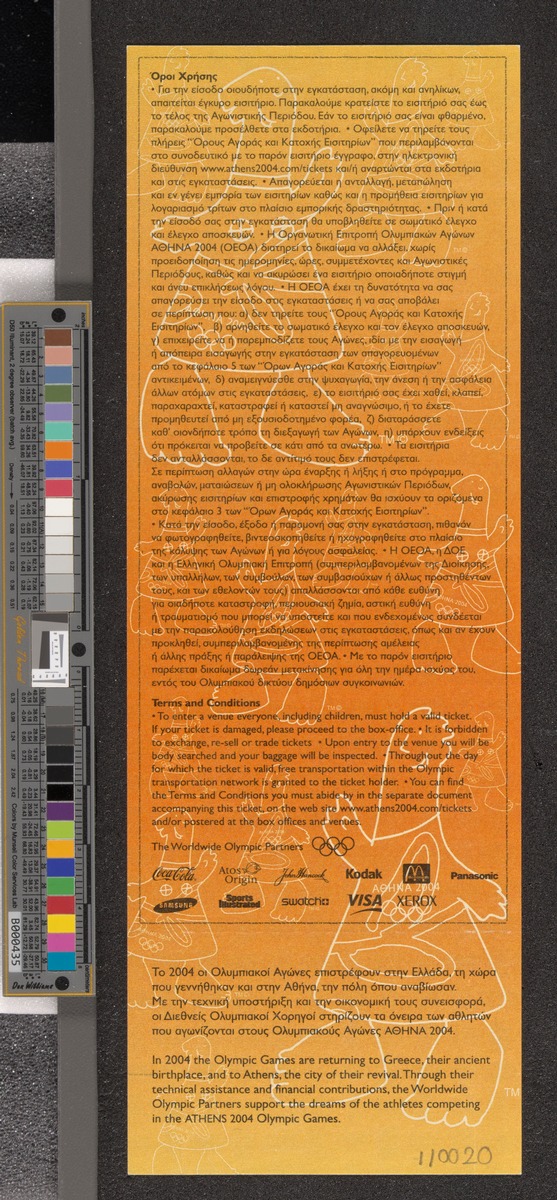 Όροι Χρήσης
• Για την είσοδο οιουδήποτε στην εγκατάσταση, ακόμη και ανηλίκων,
απαιτείται έγκυρο εισιτήριο. Παρακαλούμε κρατείστε το εισιτήριό σας έως
το τέλος της Αγωνιστικής Περιόδου. Εάν το εισιτήριό σας είναι φθαρμένο,
παρακαλούμε προσέλθετε στα εκδοτήρια. • Οφείλετε να τηρείτε τους
πλήρεις “Όρους Αγοράς και Κατοχής Εισιτηρίων” που περιλαμβάνονται
στο συνοδευτικό με το παρόν εισιτήριο έγγραφο, στην ηλεκτρονική
διεύθυνση www.athens2004.com/tickets και/ή αναρτώνται στα εκδοτήρια
και στις εγκαταστάσεις. • Απαγορεύεται η ανταλλαγή, μεταπώληση
και εν γένει εμπορία των εισιτηρίων καθώς και η προμήθεια εισιτηρίων για
λογαριασμό τρίτων στο πλαίσιο εμπορικής δραστηριότητας. • Πριν ή κατά
την είσοδό σας στην εγκατάσταση θα υποβληθείτε σε σωματικό έλεγχο
και έλεγχο αποσκευών. • Η Οργανωτική Επιτροπή Ολυμπιακών Αγώνων
ΑΘΗΝΑ 2004 (ΟΕΟΑ) διατηρεί το δικαίωμα να αλλάξει, χωρίς
προειδοποίηση τις ημερομηνίες, ώρες, συμμετέχοντες και Αγωνιστικές
Περιόδους, καθώς και να ακυρώσει ένα εισιτήριο οποιαδήποτε στιγμή
και άνευ επικλήσεως λόγου. • Η ΟΕΟΑ έχει τη δυνατότητα να σας
απαγορεύσει την είσοδο στις εγκαταστάσεις ή να σας αποβάλει
σε περίπτωση που: α) δεν τηρείτε τους “Όρους Αγοράς και Κατοχής
Εισιτηρίων”, β) αρνηθείτε το σωματικό έλεγχο και τον έλεγχο αποσκευών,
γ) επιχειρείτε να ή παρεμποδίζετε τους Αγώνες, ιδία με την εισαγωγή
ή απόπειρα εισαγωγής στην εγκατάσταση των απαγορευμένων
από το κεφάλαιο 5 των “Όρων Αγοράς και Κατοχής Εισιτηρίων”
αντικειμένων, δ) αναμειγνύεσθε στην ψυχαγωγία, την άνεση ή την ασφάλεια
άλλων ατόμων στις εγκαταστάσεις, ε) το εισιτήριό σας έχει χαθεί, κλαπεί,
παραχαραχτεί, καταστραφεί ή καταστεί μη αναγνώσιμο, ή το έχετε
προμηθευτεί από μη εξουσιοδοτημένο φορέα, ζ) διαταράσσετε
καθ’ οιονδήποτε τρόπο τη διεξαγωγή των Αγώνων, η) υπάρχουν ενδείξεις
ότι πρόκειται να προβείτε σε κάτι από τα ανωτέρω. • Τα εισιτήρια
δεν ανταλλάσσονται, το δε αντίτιμό τους δεν επιστρέφεται.
Σε περίπτωση αλλαγών στην ώρα έναρξης ή λήξης ή στο πρόγραμμα,
αναβολών, ματαιώσεων ή μη ολοκλήρωσης Αγωνιστικών Περιόδων,
ακύρωσης εισιτηρίων και επιστροφής χρημάτων θα ισχύουν τα οριζόμενα
στο κεφάλαιο 3 των “Όρων Αγοράς και Κατοχής Εισιτηρίων”.
• Κατά την είσοδο, έξοδο ή παραμονή σας στην εγκατάσταση, πιθανόν
να φωτογραφηθείτε, βιντεοσκοπηθείτε ή ηχογραφηθείτε στο πλαίσιο
της κάλυψης των Αγώνων ή για λόγους ασφαλείας. • Η ΟΕΟΑ, η ΔΟΕ
και η Ελληνική Ολυμπιακή Επιτροπή (συμπεριλαμβανομένων της Διοίκησης,
των υπαλλήλων, των συμβούλων, των συμβασιούχων ή άλλως προστηθέντων
τους, και των εθελοντών τους) απαλλάσσονται από κάθε ευθύνη
για οιαδήποτε καταστροφή, περιουσιακή ζημία, αστική ευθύνη
ή τραυματισμό που μπορεί να υποστείτε και που ενδεχομένως συνδέεται
με την παρακολούθηση εκδηλώσεων στις εγκαταστάσεις, όπως και αν έχουν
προκληθεί, συμπεριλαμβανομένης της περίπτωσης αμέλειας
ή άλλης πράξης ή παράλειψης της ΟΕΟΑ. • Με το παρόν εισιτήριο
παρέχεται δικαίωμα δωρεάν μετακίνησης για όλη την ημέρα ισχύος του,
εντός του Ολυμπιακού δικτύου δημόσιων συγκοινωνιών.
Terms and Conditions
• To enter a venue everyone, including children, must hold a valid ticket.
If your ticket is damaged, please proceed to the box-office. • It is forbidden
to exchange, re-sell or trade tickets • Upon entry to the venue you will be
body searched and your baggage will be inspected. • Throughout the day
for which the ticket is valid, free transportation within the Olympic
transportation network is granted to the ticket holder. • You can find
the Terms and Conditions you must abide by in the separate document
accompanying this ticket, on the web site www.athens2004.com/tickets
and/or postered at the box offices and venues.
The Worldwide Olympic Partners
Coca-Cola Atos Origin John Hancock Kodak Panasonic
ΑΘΗΝΑ 2004
SAMSUNG Sports Illustrated swatch VISA XEROX
Το 2004 οι Ολυμπιακοί Αγώνες επιστρέφουν στην Ελλάδα, τη χώρα
που γεννήθηκαν και στην Αθήνα, την πόλη όπου αναβίωσαν.
Με την τεχνική υποστήριξη και την οικονομική τους συνεισφορά,
οι Διεθνείς Ολυμπιακοί Χορηγοί στηρίζουν τα όνειρα των αθλητών
που αγωνίζονται στους Ολυμπιακούς Αγώνες ΑΘΗΝΑ 2004.
In 2004 the Olympic Games are returning to Greece, their ancient
birthplace, and to Athens, the city of their revival. Through their
technical assistance and financial contributions, the Worldwide
Olympic Partners support the dreams of the athletes competing
in the ATHENS 2004 Olympic Games.
TM
110020
B000435
Colors by Munsell Color Services Lab
Don Williams